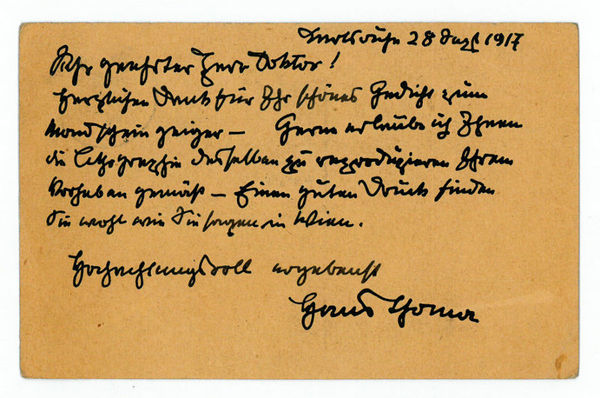 Karlsruhe 28 Dez 1917
Sehr geehrter Herr Doktor!
Herzlichen Dank für Ihr schönes Gedicht zum
Mondscheingeiger – Gerne erlaube ich Ihnen
die Lithographie desselben zu reproduzieren Ihrem
Vorhaben gemäß – Einen guten Druck finden
Sie wohl wie Sie sagen in Wien.
Hochachtungsvoll ergebenst
Hans Thoma